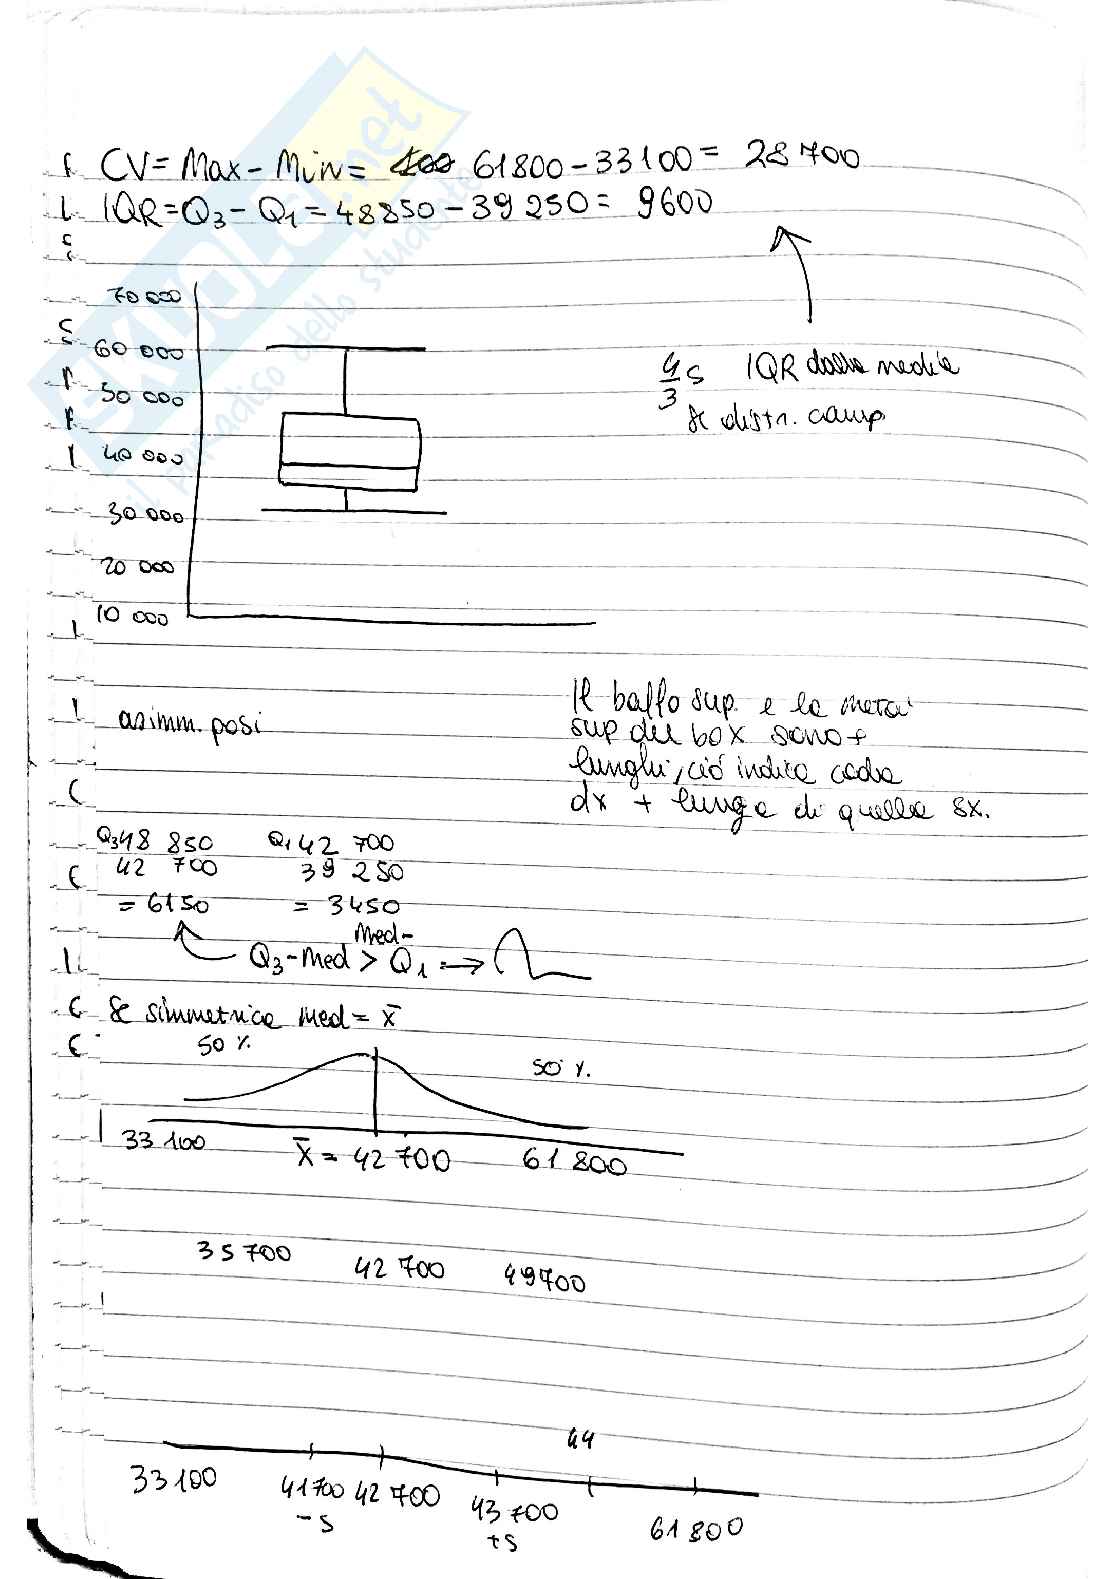 CV = Max - Min = 61800 - 33100 = 28700
IQR = Q3 - Q1 = 48850 - 39250 = 9600
70 000
60 000
50 000
40 000
30 000
20 000
10 000
4/3 s IQR dalla media
se distr. camp
asimm. posi
Il baffo sup. e la metà
sup del box sono +
lunghi, ciò indica coda
dx + lunga di quella sx.
Q3 48 850
42 700
= 6150
Q1 42 700
39 250
= 3450
Q3 - Med > Med - Q1 →
Se simmetrica med = x̄
50 %.
50 %.
33 100
x̄ = 42 700
61 800
35 700
42 700
49700
44
33 100
41700
- s
42 700
43 700
+ s
61 800
SKUOLA.net
il paradiso dello studente